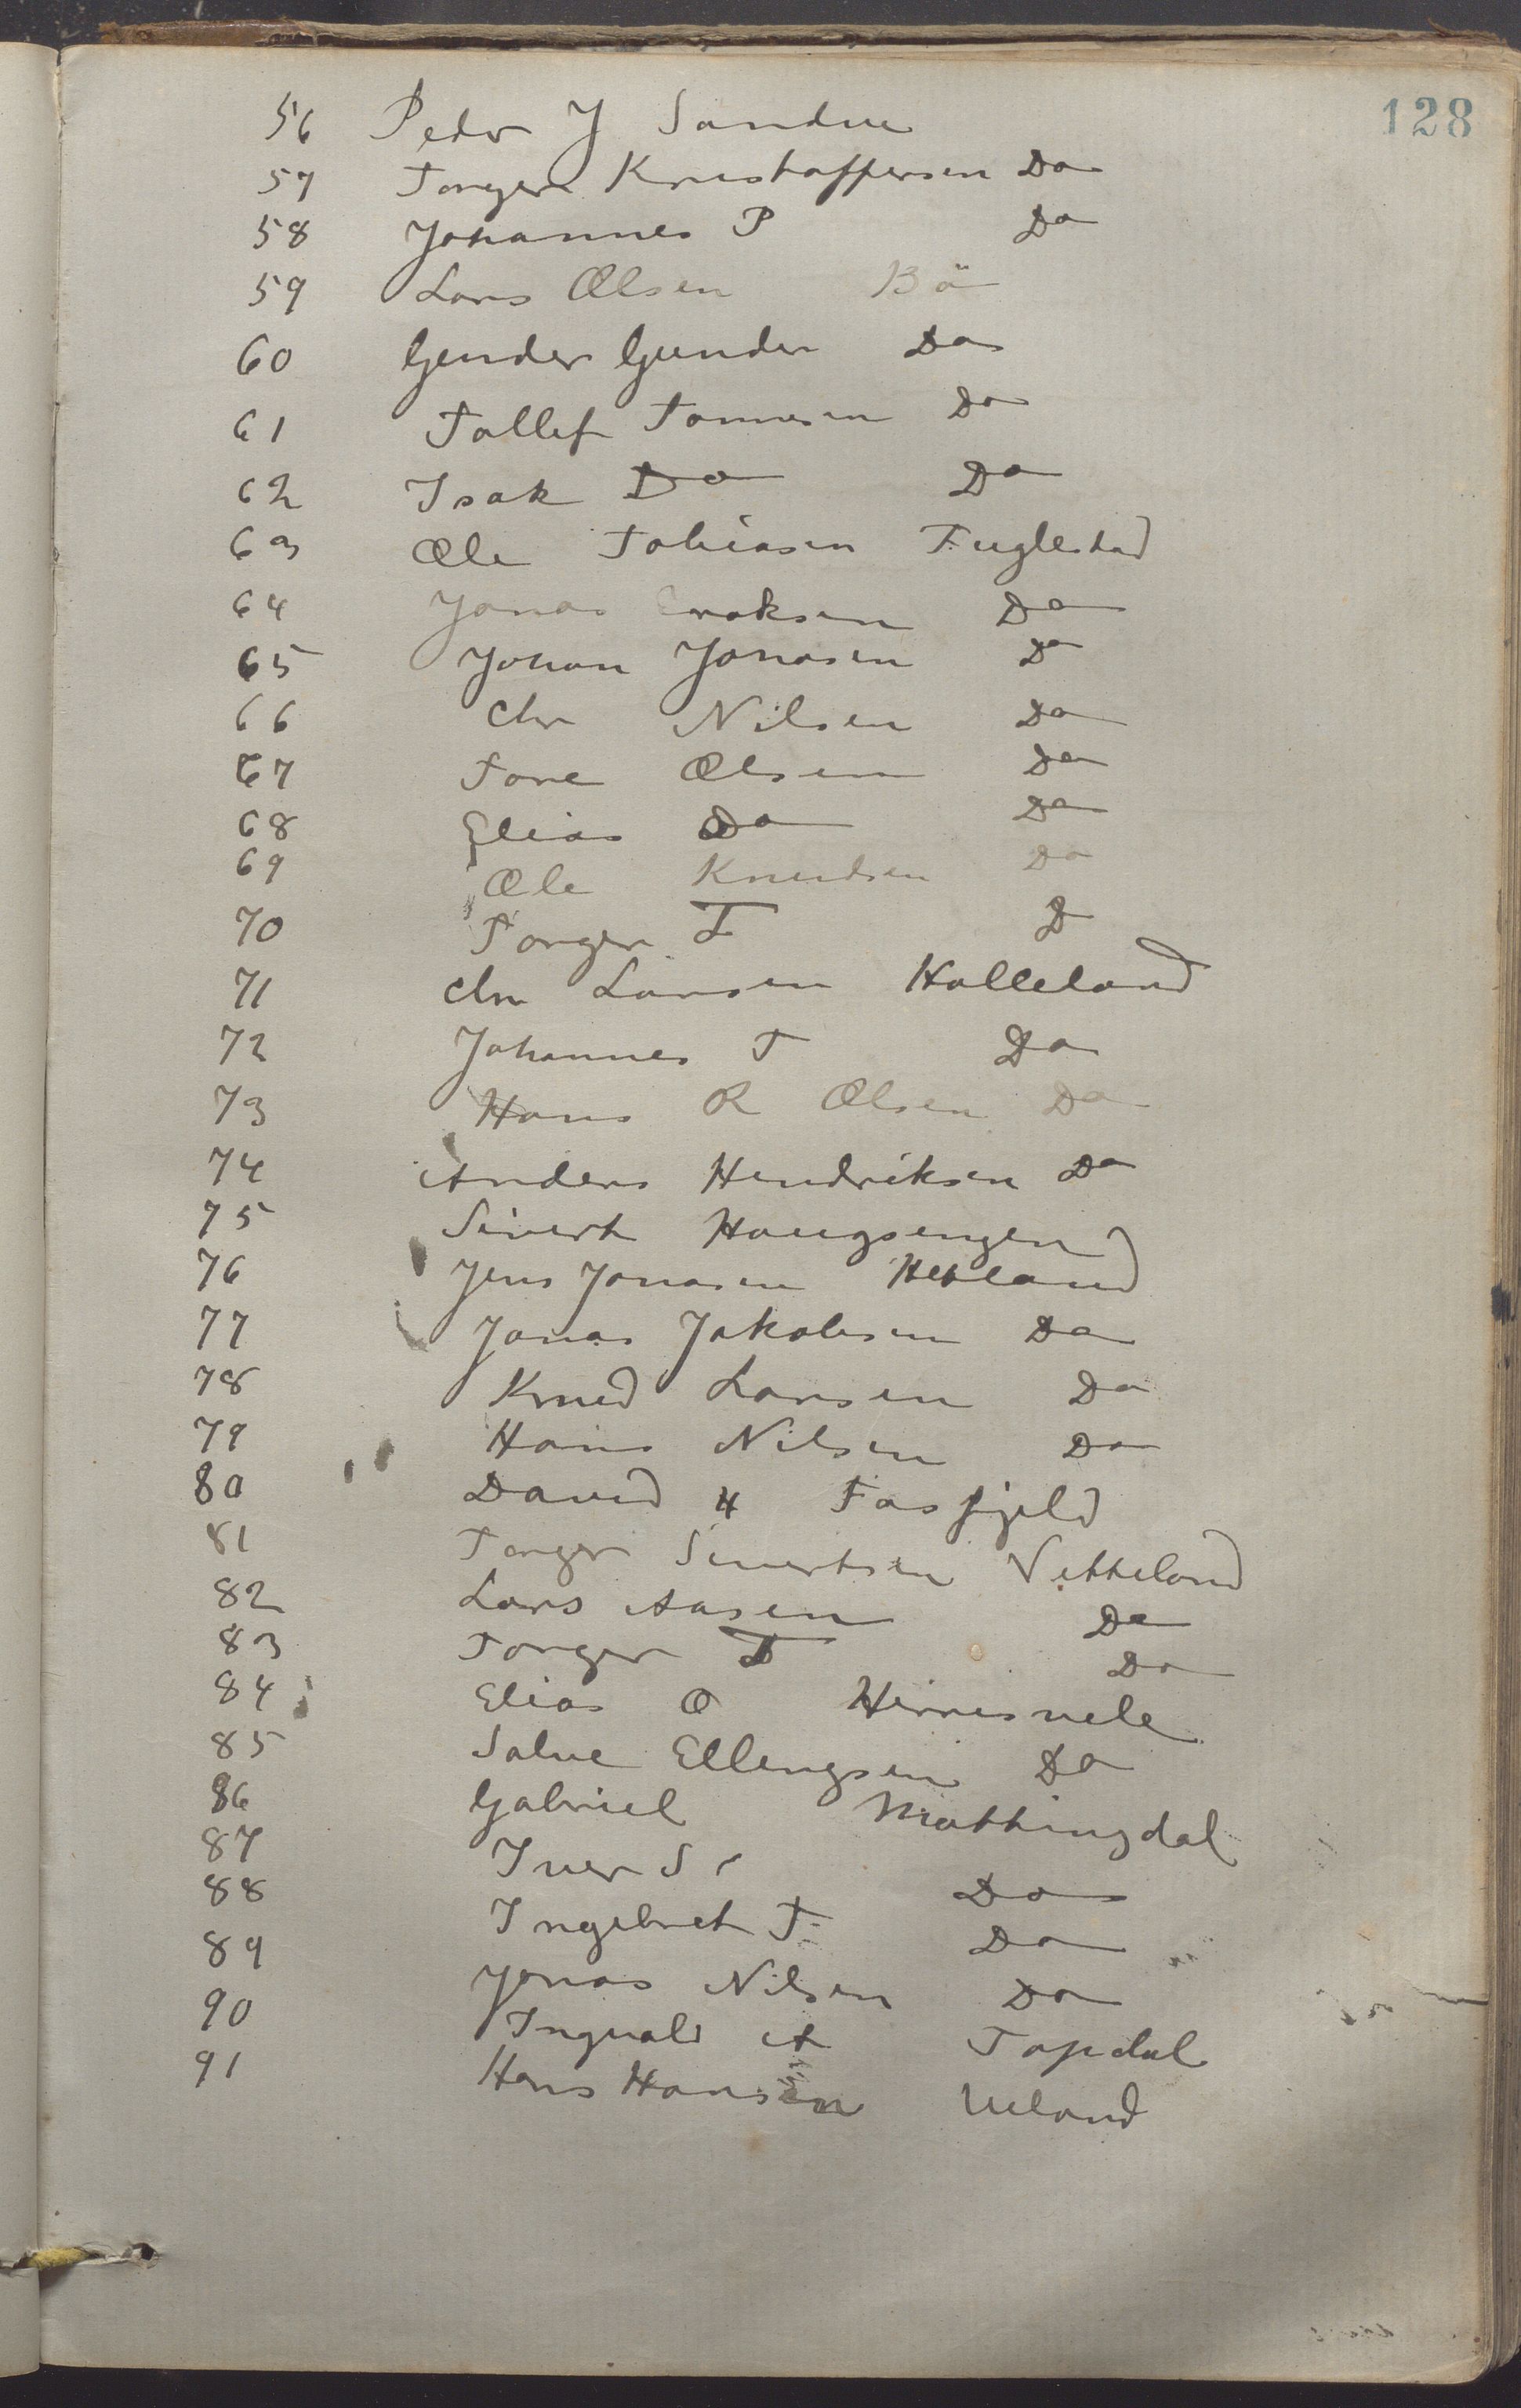 128
56 Peder J Sandve
57 Torger Kristoffersen Do
58 Johannes P Do
59 Lars Olsen Bö
60 Gunder Gunder Do
61 Tollef Tonnesen Do
62 Isak Do Do
63 Ole Tobiasen Fuglestad
64 Jonas Eroksen Do
65 Johan Jonasen Do
66 Chr Nilsen Do
67 Tore Olsen Do
68 Elias Do Do
69 Ole Knudsen Do
70 Torger T D
71 Chr Larsen Halleland
72 Johannes T Do
73 Hans R Olsen Do
74 Anders Hendriksen Do
75 Sivert Haugsengen
76 Jens Jonasen Hetland
77 Jonas Jakobsen Do
78 Knud Larsen Do
79 Hans Nilsen Do
80 David H Fasfjeld
81 Torger Sivertsen Vetteland
82 Lars Aasen Do
83 Torger T Do
84 Elias O
85 Salve Ellingsen Do
86 Gabriel Mattingdal
87 Iver S Do
88 Ingebret T Do
89 Jonas Nilsen Do
90 Ingvald A Topdal
91 Hans Hansen Ueland